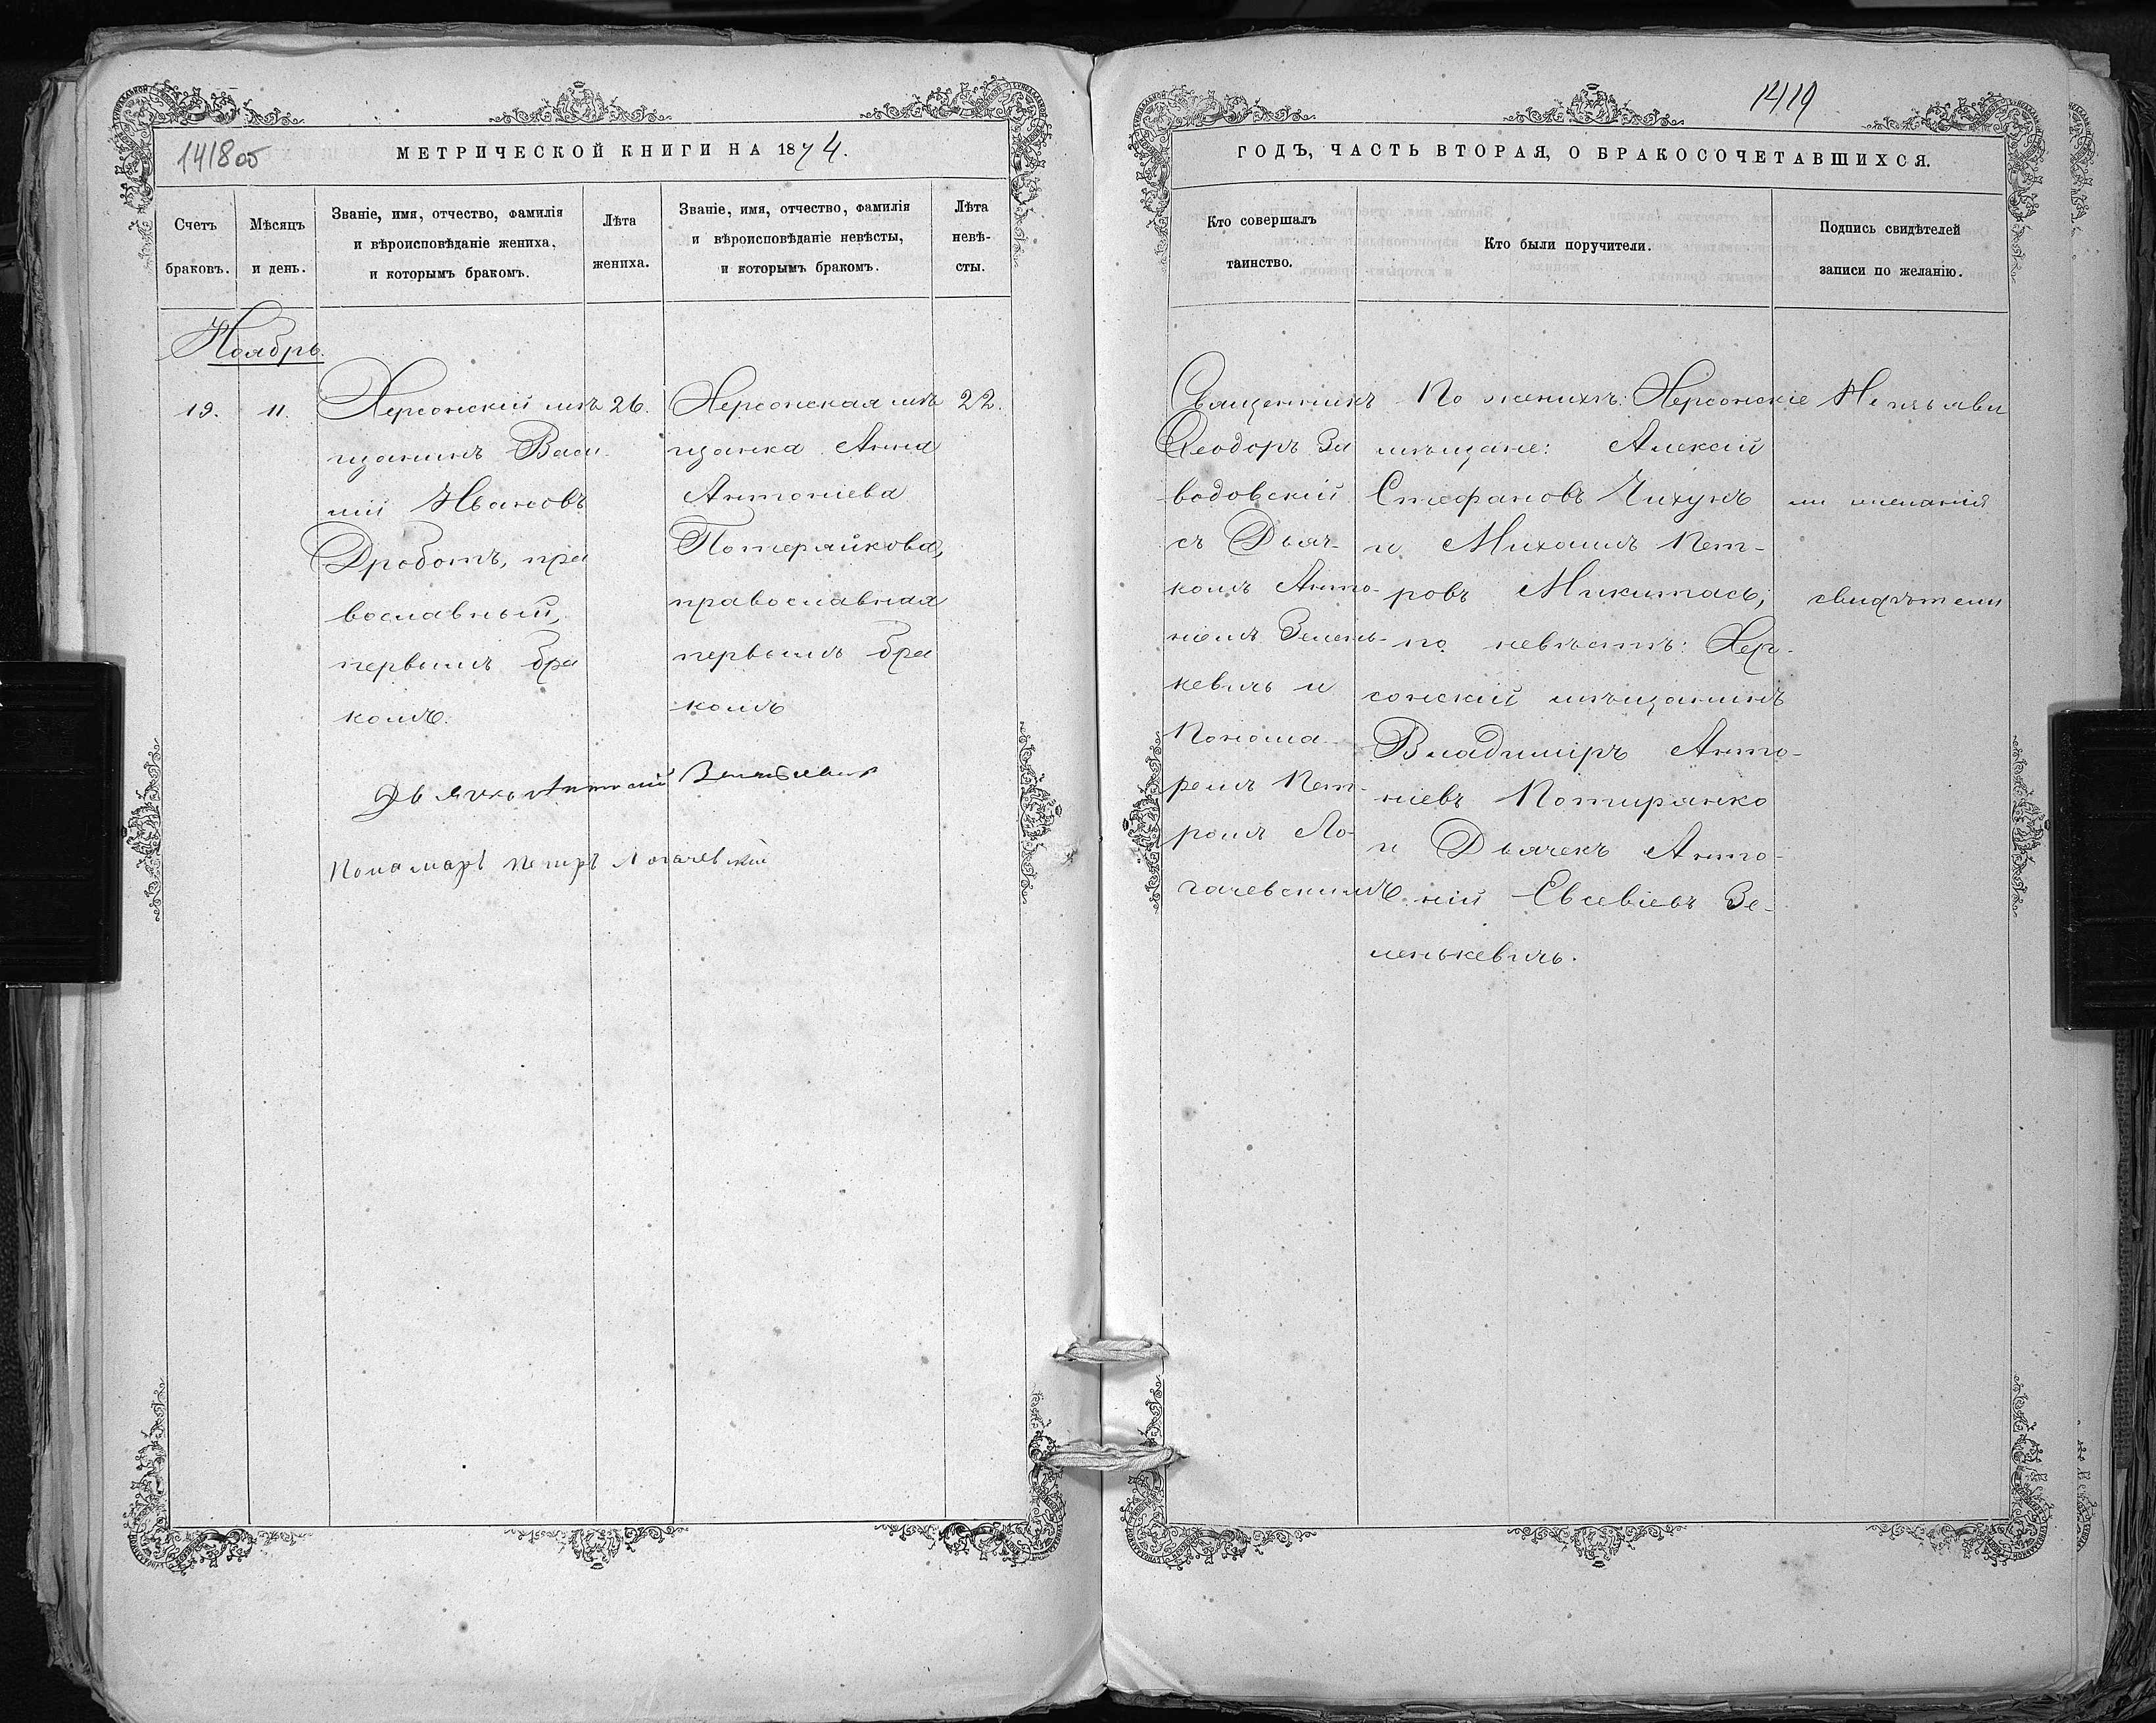 1418об
МЕТРИЧЕСКОЙ КНИГИ НА 1874.
Счетъ
браковъ.
Мѣсяцъ
и день.
Званіе, имя, отчество, фамилія
и вѣроисповѣданіе жениха,
и которымъ бракомъ.
Лѣта
жениха.
Званіе, имя, отчество, фамилія
и вѣроисповѣданіе невѣсты,
и которымъ бракомъ.
Лѣта
невѣ-
сты.
Ноябрь.
19.
11.
Херсонскій мѣ
щанинъ Васи-
лій Ивановъ
Дроботъ, пра
вославный,
первымъ бра
комъ.
26.
Херсонская мѣ
щанка Анна
Антоніева
Потерайкова,
православная
первымъ бра
комъ
22.
Дьячекъ Антоній Зеленкевичъ
Понамарь Петръ Логачевскій
1419
ГОДЪ, ЧАСТЬ ВТОРАЯ, О БРАКОСОЧЕТАВШИХСЯ.
Кто совершалъ
таинство.
Кто были поручители.
Подпись свидѣтелей
записи по желанію.
Священникъ
Ѳеодоръ За
водовскій
съ Дьяч-
комъ Анто-
ніемъ Зелень-
кевичь и
Понома-
ремъ Пет-
ромъ Ло-
гачевскимъ.
По женихѣ: Херсонскіе
мѣщане: Алексѣй
Стефановъ Чихунъ
и Михаилъ Пет-
ровъ Микитась;
по невѣстѣ: Хер-
сонскій мѣщанинъ
Владиміръ Анто-
ніевъ Потирянко
и Дьячекъ Анто-
ній Евсевіевъ Зе-
ленькевичь.
Неизъяви
ли желаній
свидѣтели